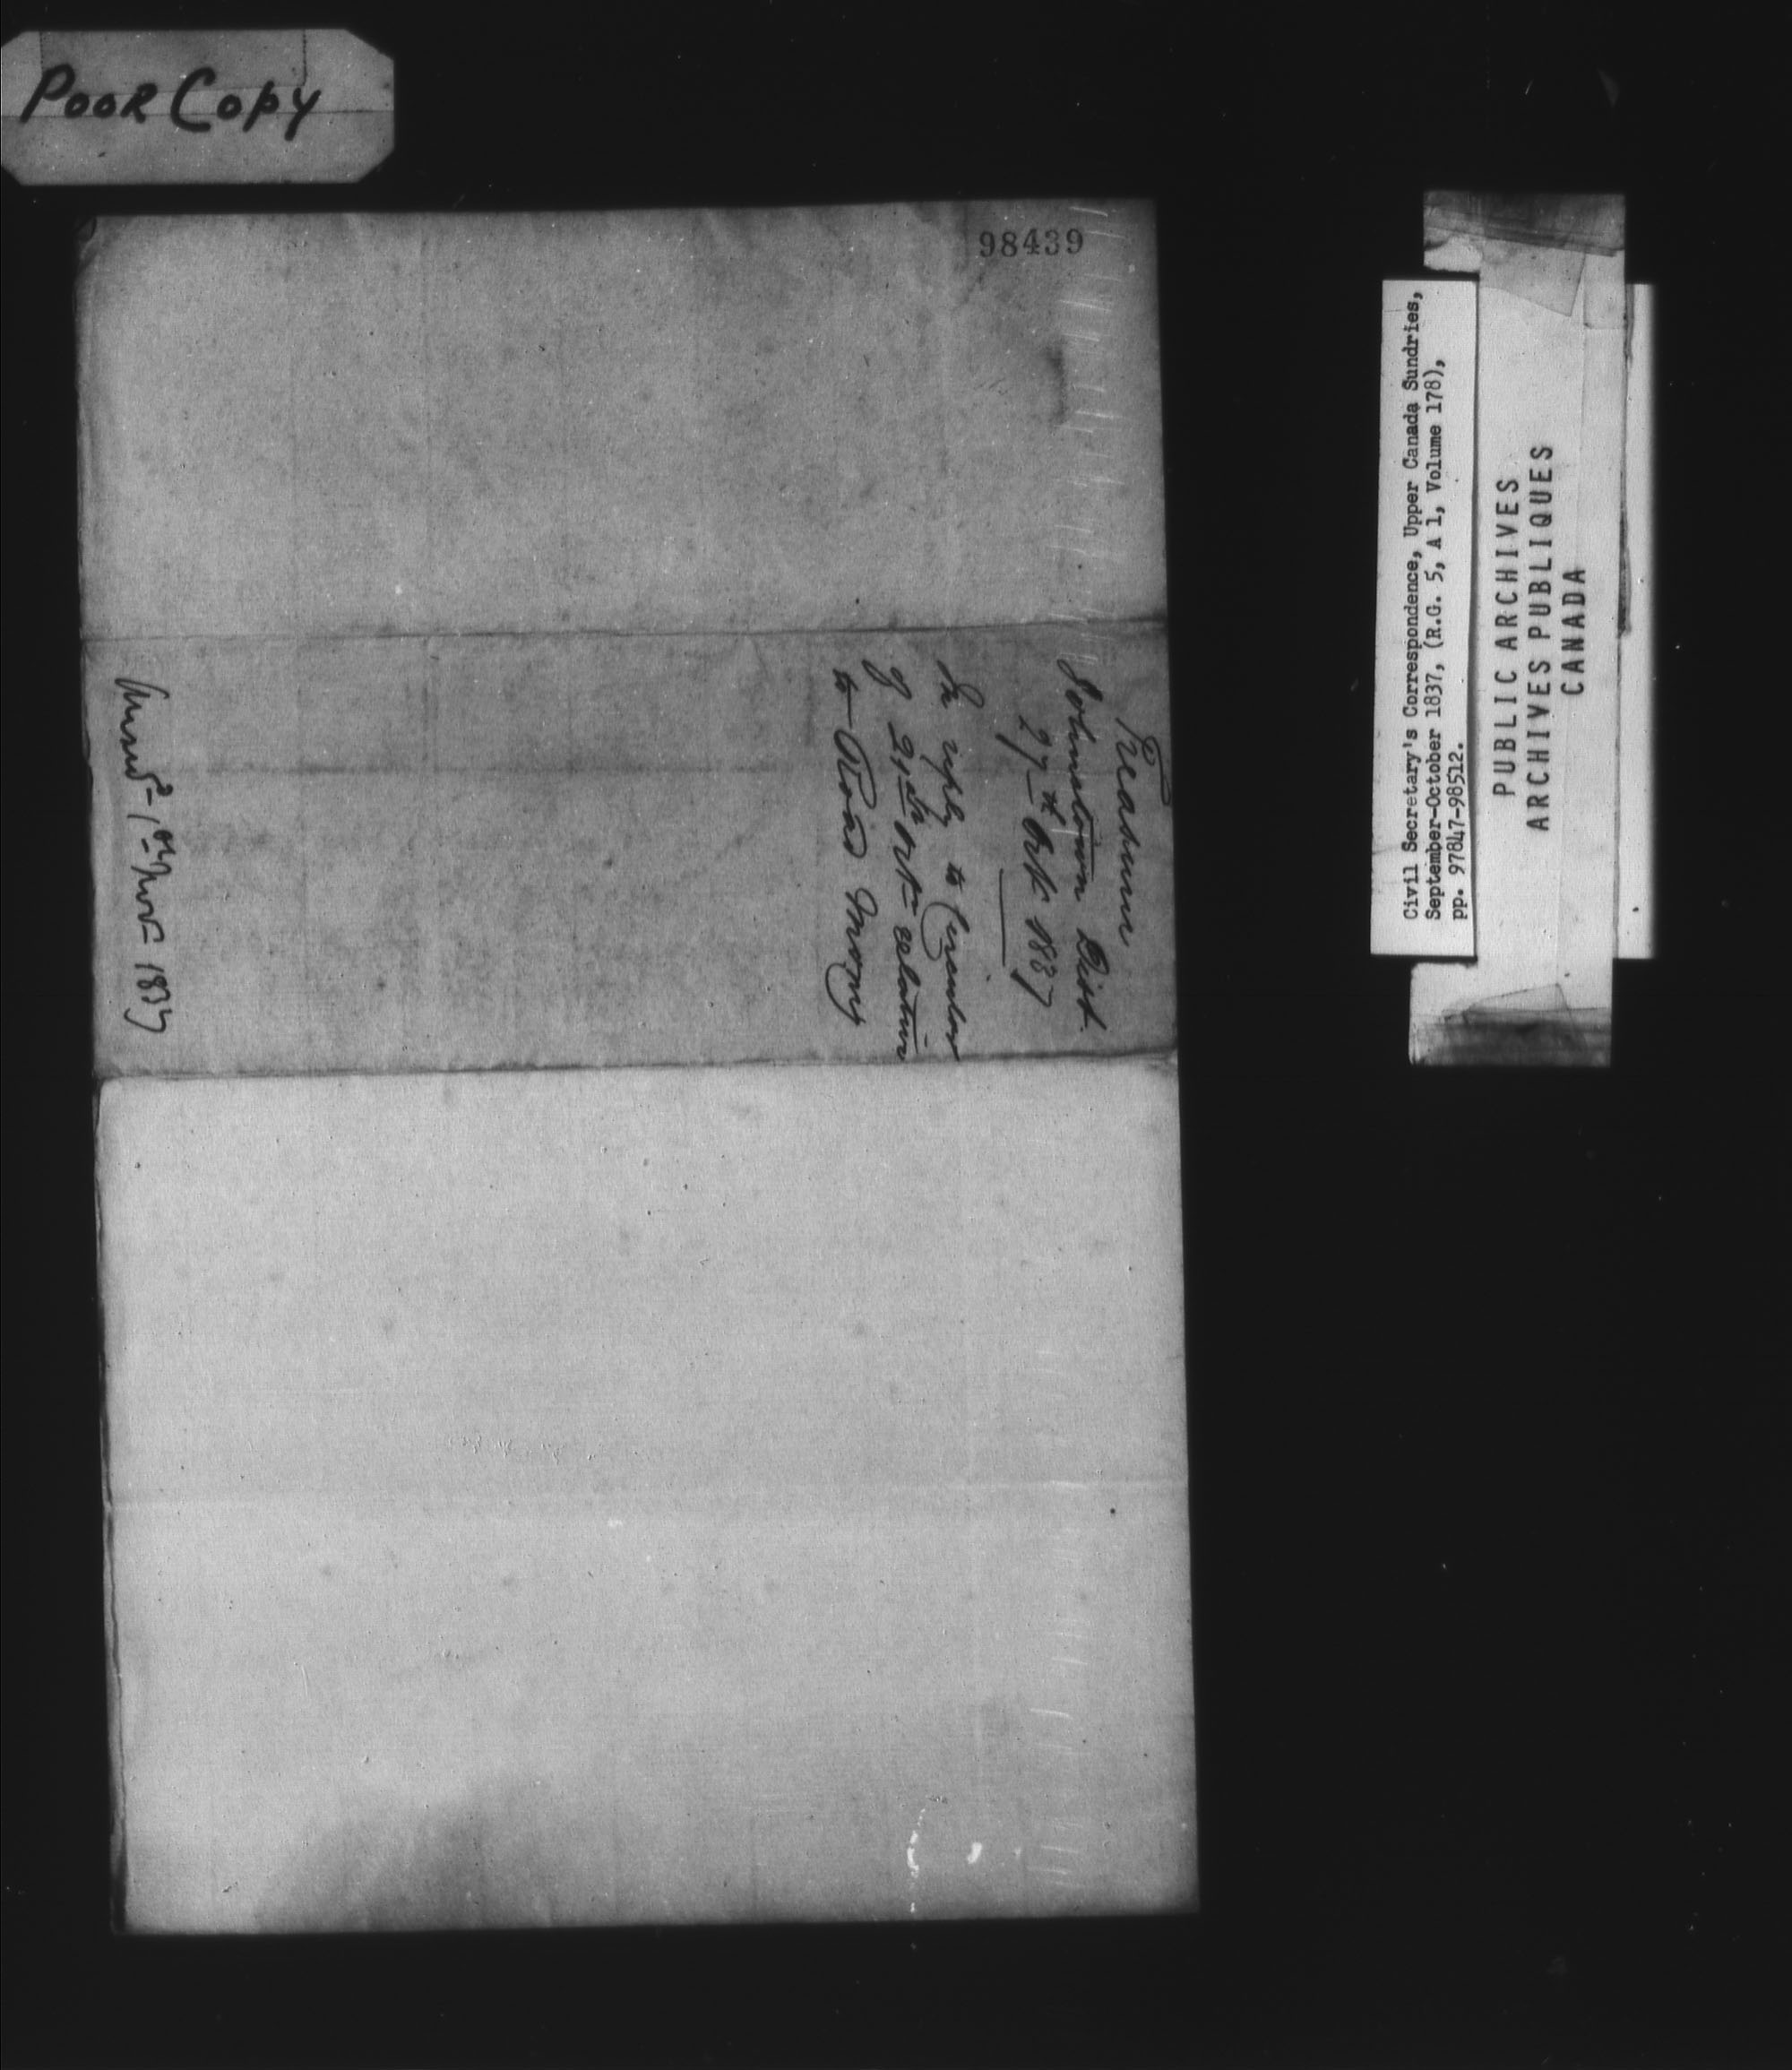 Poor Copy
98439
Treasurer
Johnstown Dist.
27th Octr 1837
In reply to Circular
of 21st Octr relative
to Road Money
1st Novr 1837
Civil Secretary's Correspondence, Upper Canada Sundries,
September-October 1837, (R.G. 5, A 1, Volume 178),
pp. 97847-98512.
PUBLIC ARCHIVES
ARCHIVES PUBLIQUES
CANADA